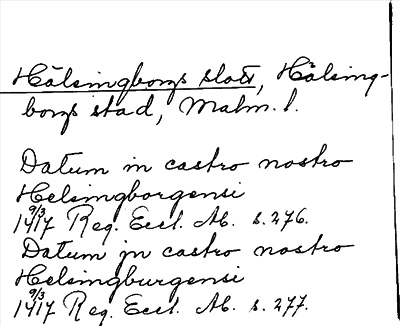 Hälsingborgs slott, Hälsing-
borgs stad, Malm. l.
Datum in castro nostro
Helsingborgensi
9/3
1417 Reg. Eccl. Ab. s. 276.
Datum in castro nostro
Helsingburgensi
9/3
1417 Reg. Eccl. Ab. s. 277.